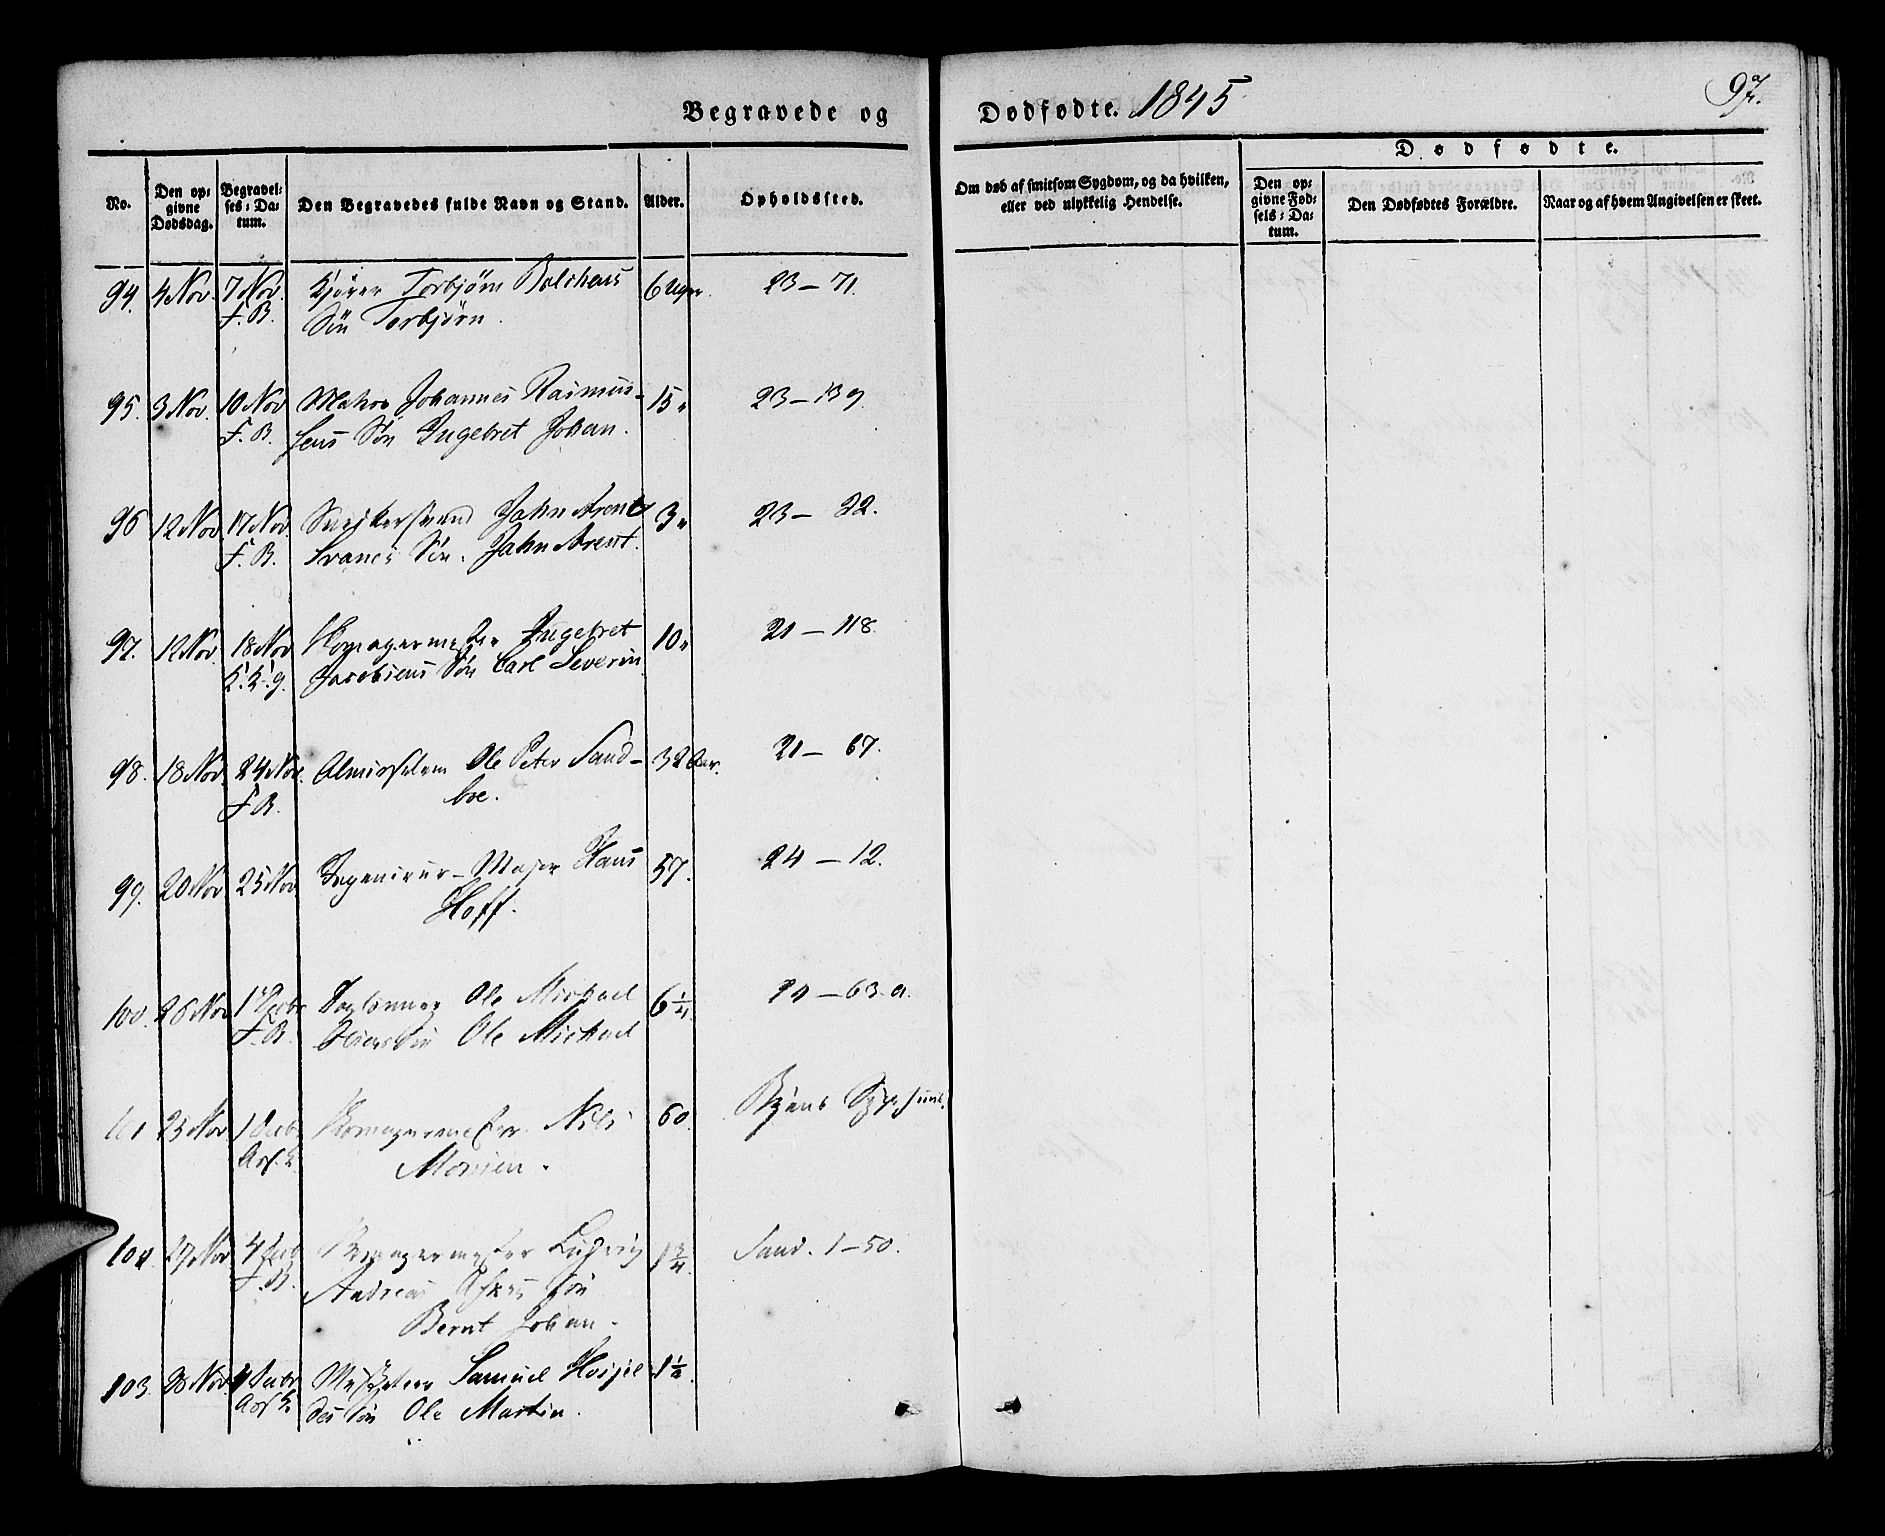 Begravede og
Dødfødte. 1845
97.
No.
Den op-
givne
Dødsdag.
Begravel-
ses-Da-
tum.
Den Begravedes fulde Navn og Stand.
Alder.
Opholdssted.
Om død af smitsom Sygdom, og da hvilken,
eller ved ulykkelig Hendelse.
Dødfødte.
Den op-
givne Fød-
sels-Da-
tum.
Den Dødfødtes Forældre.
Naar og af hvem Angivelsen er skeet.
94. 4 Nov. 7 Nov. Kjører Torbjørn 6 Uger. 23 – 71.
F. B. Søn Torbjørn.
95. 3 Nov. 10 Nov Johannes Rasmus- 15 " 23 – 139.
F. B. sens Søn Ingebret Johan.
96 12 Nov 17 Nov. Snedkersvend Jahn Arent 3 " 23 – 22.
F. B. Svanes Søn. Jahn Arent.
97. 12 Nov. 18 Nov Ingebret 10 " 21 – 118.
Jacobsens Søn Carl Severin
98. 18 Nov. 24 Nov. Ole Peter Sand- 32 Aar. 21 – 67.
F B. boe.
99. 20 Nov 25 Nov Ingenieur-Major Hans 57. 24 – 12.
Hoff.
100. 26 Nov 1 Decbr Ole Michael 6 1/4 – 63.a.
F. B. Søn Ole Michael
101 23 Nov 1 Decbr Niels 60. Byens
Monsen.
27 Nov 4 Decb Ludvig 1 3/4 Sand. 1 – 50.
F. B. Andreas Søn
Bernt Johan.
103. 28 Nov. 4 Decbr Samuel 1 1/2
Søn Ole Martin.